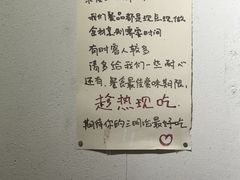 我们餐品都是现点现做
食材烹制需要时间
有时客人较多
请多给我们一些耐心
还有,餐食最佳赏味期限,
趁热现吃
期待你的三明治最好吃